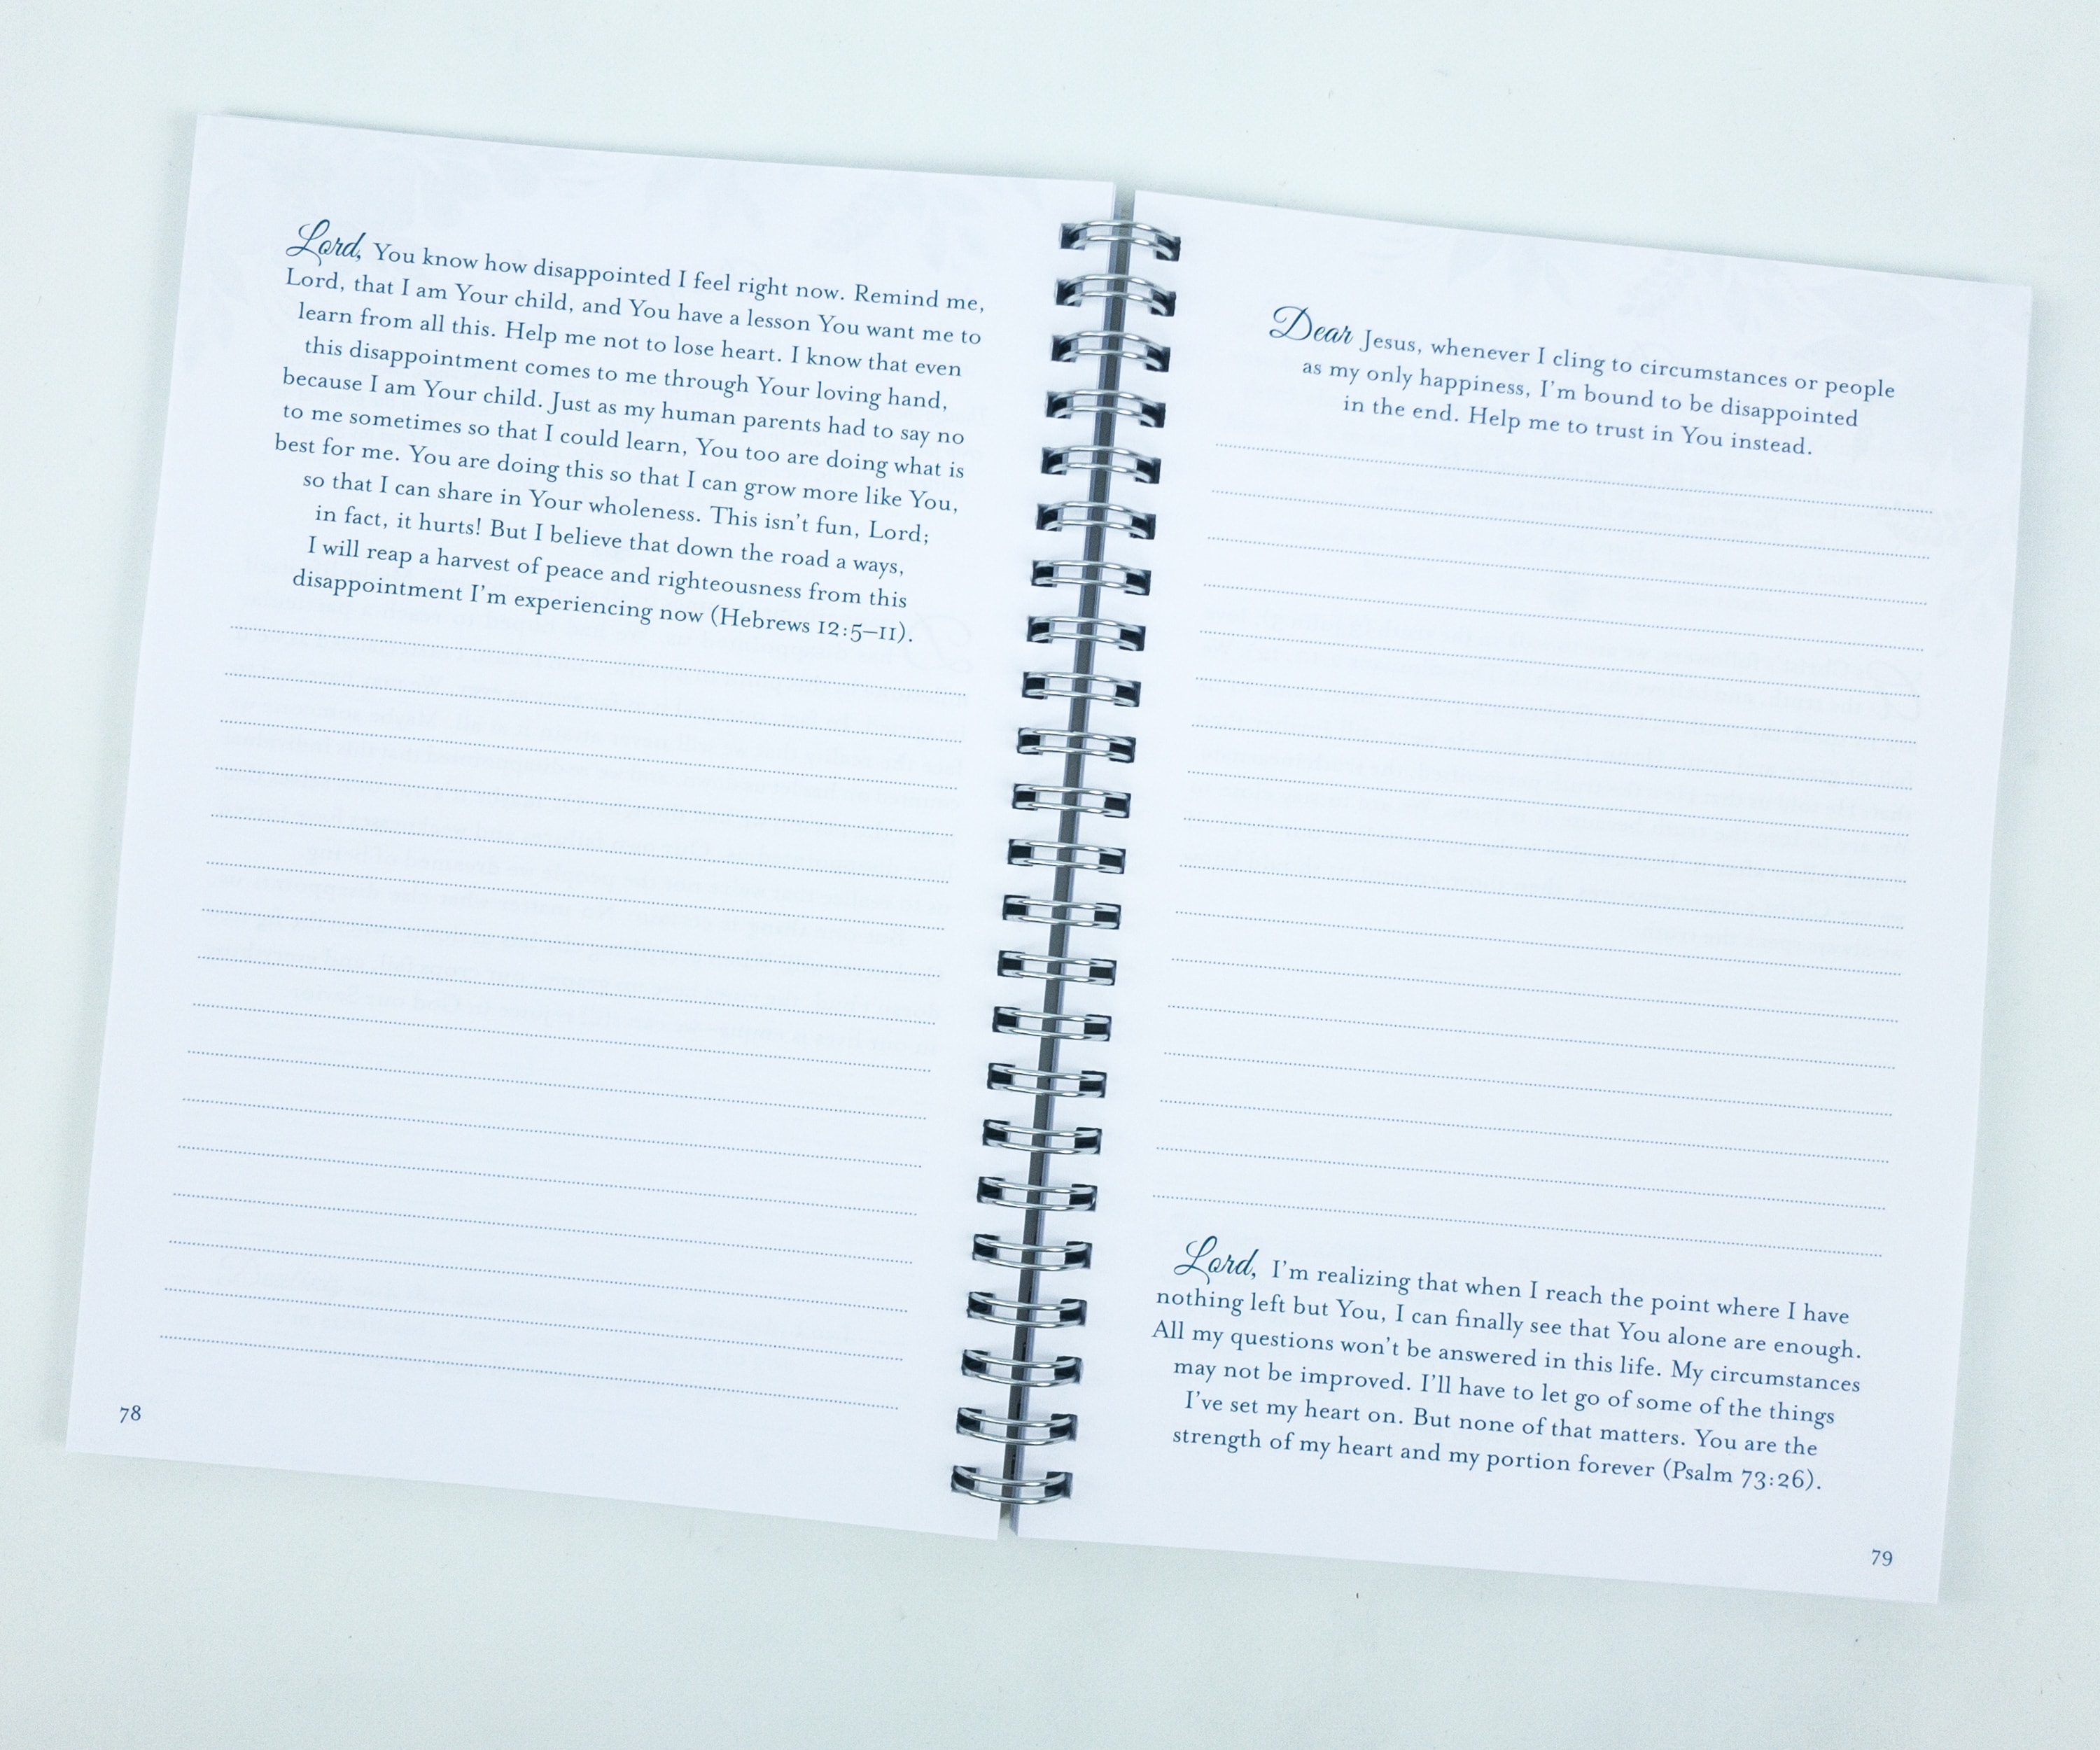 Lord, You know how disappointed I feel right now. Remind me,
Lord, that I am Your child, and You have a lesson You want me to
learn from all this. Help me not to lose heart. I know that even
this disappointment comes to me through Your loving hand,
because I am Your child. Just as my human parents had to say no
to me sometimes so that I could learn, You too are doing what is
best for me. You are doing this so that I can grow more like You,
so that I can share in Your wholeness. This isn't fun, Lord;
in fact, it hurts! But I believe that down the road a ways,
I will reap a harvest of peace and righteousness from this
disappointment I'm experiencing now (Hebrews 12:5–11).
78
Dear Jesus, whenever I cling to circumstances or people
as my only happiness, I'm bound to be disappointed
in the end. Help me to trust in You instead.
Lord, I'm realizing that when I reach the point where I have
nothing left but You, I can finally see that You alone are enough.
All my questions won't be answered in this life. My circumstances
may not be improved. I'll have to let go of some of the things
I've set my heart on. But none of that matters. You are the
strength of my heart and my portion forever (Psalm 73:26).
79